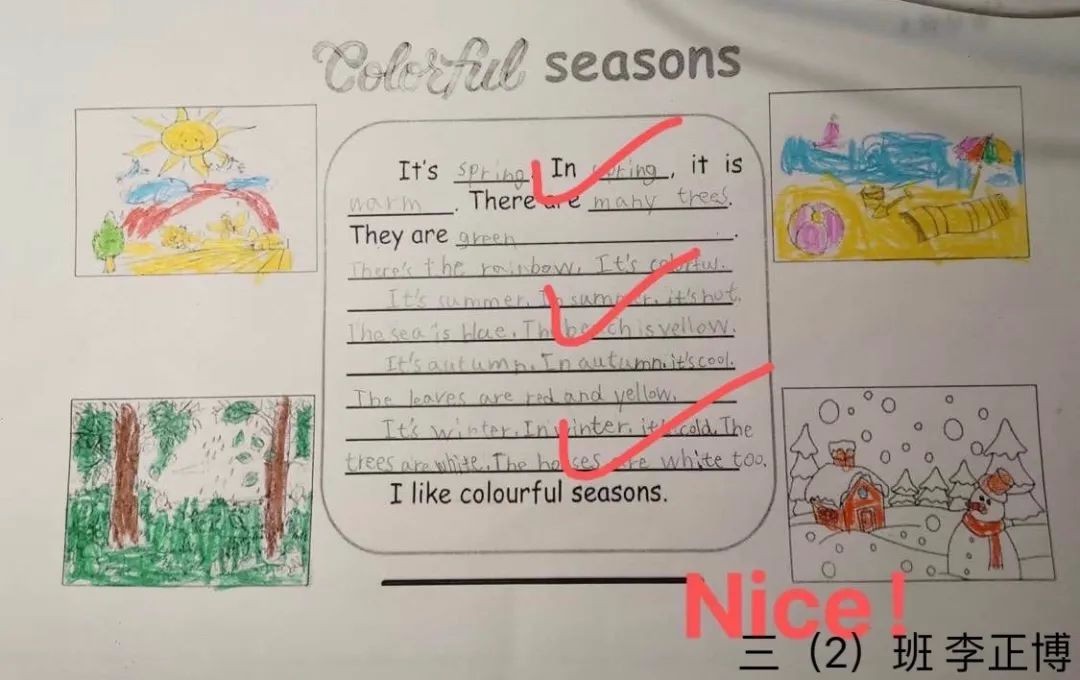 Colorful seasons
It's spring. In spring, it is
warm. There are many trees.
They are green.
There's the rainbow. It's colorful.
It's summer. In summer, it's hot.
The sea is blue. The beach is yellow.
It's autumn. In autumn, it's cool.
The leaves are red and yellow.
It's winter. In winter, it's cold. The
trees are white. The houses are white too.
I like colourful seasons.
Nice!
三（2）班 李正博